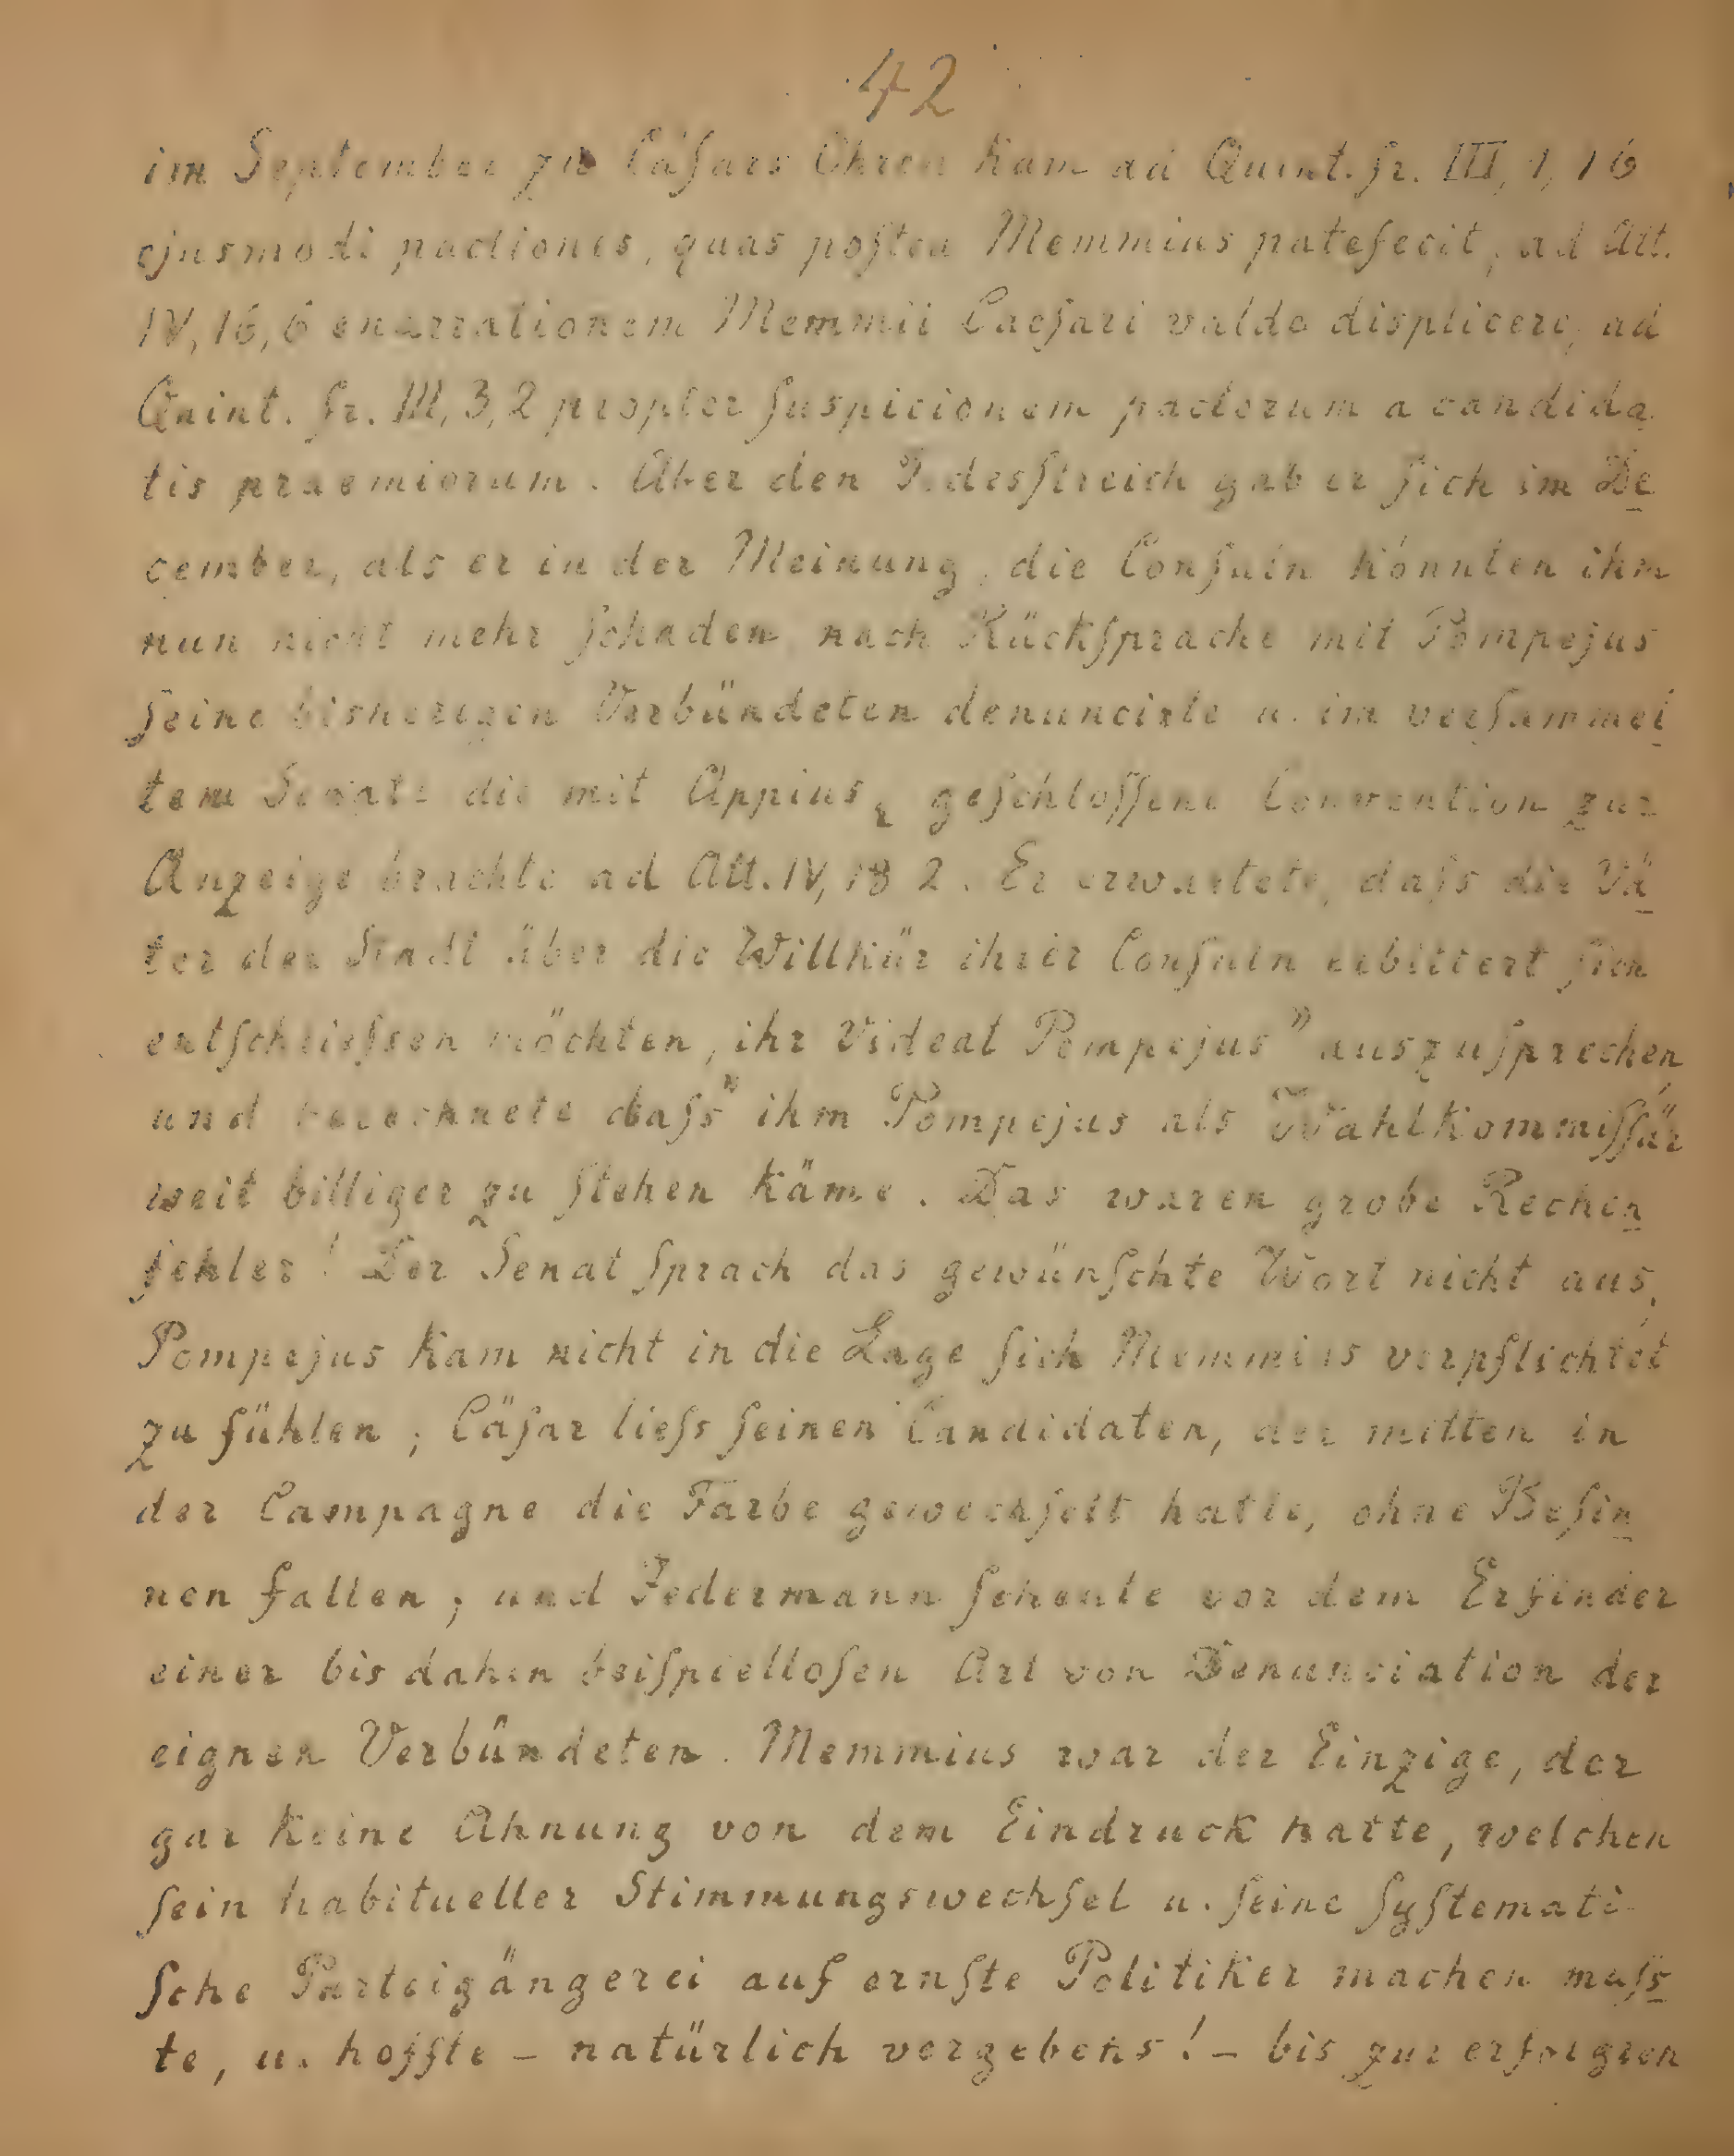 42
im September zu Cäſars Ohren kam ad Quint. fr. III, 1, 16
ejusmodi pactiones, quas poſtea Memmius patefecit, ad Att.
IV, 16, 6 enarrationem Memmii Caeſari valde displicere, ad
Quint. fr. III, 3, 2 propter ſuspicionem pactorum a candida
tis praemiorum. Aber den Todesſtreich gab er ſich im De
cember, als er in der Meinung, die Conſuln könnten ihm
nun nicht mehr ſchaden nach Rückſprache mit Pompejus
ſeine bisherigen Verbündeten denuncirte u. im verſammel
tem Senate die mit Appius geſchloſſene Convention zur
Anzeige brachte ad Att. IV, 18 2. Er erwartete, daſs die Vä
ter der Stadt über die Willkür ihrer Conſuln erbittert ſich
entſchlieſsen möchten, ihr Videat Pompejus" auszuſprechen
und berechnete daſs" ihm Pompejus als Wahlkommiſſär
weit billiger zu ſtehen käme. Das waren grobe Rechen
fehler! Der Senat ſprach das gewünſchte Wort nicht aus,
Pompejus kam nicht in die Lage ſich Memmius verpflichtet
zu fühlen; Cäſar lieſs ſeinen Candidaten, der mitten in
der Campagne die Farbe gewechſelt hatte, ohne Beſin
nen fallen; und Jedermann ſcheute vor dem Erfinder
einer bis dahin beiſpielloſen Art von Denunciation der
eignen Verbündeten. Memmius war der Einzige, der
gar keine Ahnung von dem Eindruck hatte, welchen
ſein habitueller Stimmungswechſel u. ſeine ſyſtemati-
ſche Parteigängerei auf ernſte Politiker machen muſs
te, u. hoffte – natürlich vergebens! – bis zur erfolgten